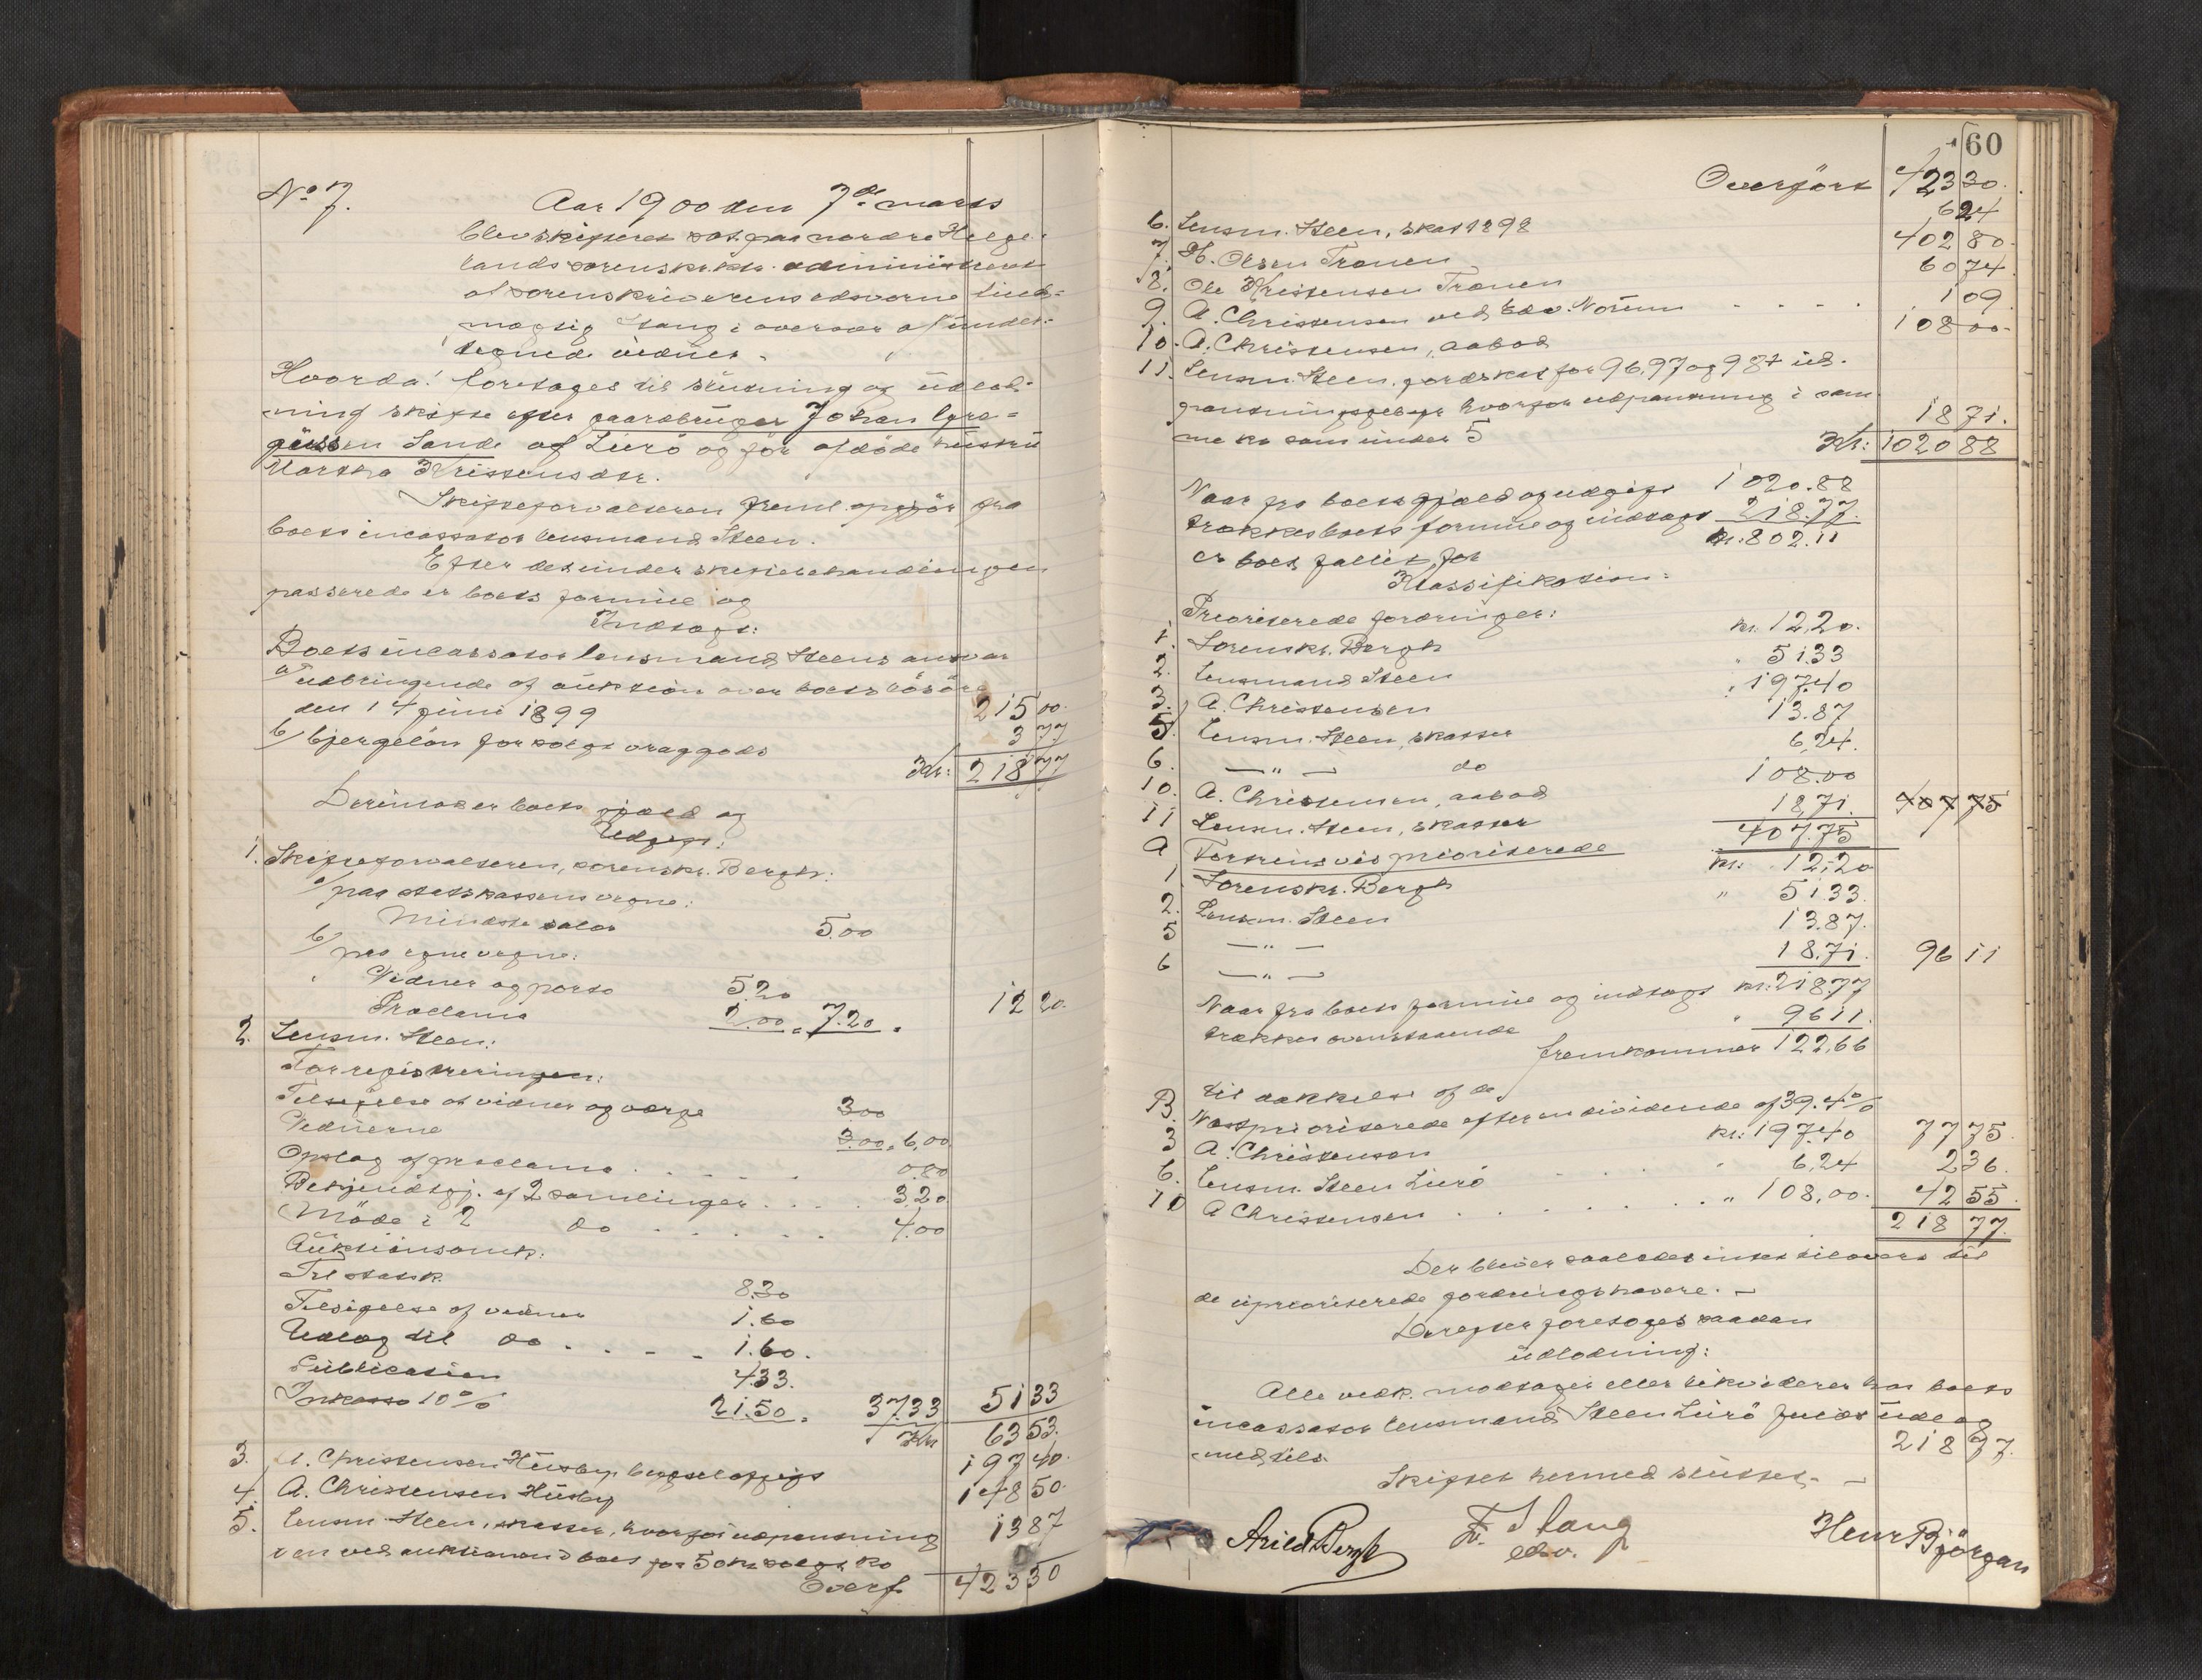 No 7. Aar 1900 den 7de marts
blev skifteret sat paa nordre Helge-
lands sorenskr.ktr. administreret
af sorenskriverens edsvorne fuld-
mægtig Stang i overvær af under-
tegnede vidner.
Hvorda: foretages til slutning og udlod-
ning skifte efter gaardbruger Johan
Sande af Lurö og før afdøde hustru
Martha Kristensdtr.
Skifteforvalteren freml. opgjör fra
boets incassator lensmand Steen.
Efter det under skiftebehandlingen
passerede er boets formue og
Indtægt:
Boets incassator lensmand Steens ansvar
a) udbringende af auktion over boets lösöre
den 14 juni 1899 215 00.
b/ bjergelön for solgt vraggods 3 77
Kr: 218 77
Derimod er boets gjæld og
Udgift:
1. Skifteforvalteren, sorenskr. Bergh:
a/ paa statskassens vegne:
Mindste salær 5.00
b/ paa egne vegne:
Vidner og porto 5.20
Proclama 2.00 = 7.20 = 12 20.
2. Lensm. Steen:
For registreringen:
Tilsigelse af vidner og værge 3.00
Vidnerne 3.00 = 6,00
Opslag af proclama . . . . . 0.80
Bekjendtgj. af 2 samlinger . . . . 3.20
Möde i 2 do . . . . . . 4.00
Auktionsomk:
Til statsk. 8.30
Tilsigelse af vidner 1.60
Udlæg til do . . . . 1.60.
Publication 4.33.
Inkasso 10 % 21.50 = 37.33 51 33
Kr. 63 53.
3. A. Christensen Husby 197 40.
4. A. Christensen Husby 148 50.
5. Lensm. Steen, skatter, hvorfor udpantning 13 87
i en ved auktionen i boet for 50 kr solgt ko
Overf. 423 30
60
Overført 423 30.
6. Lensm. Steen, skat 1898 6 24
7. H. Olsen Trænen 402 80.
8. Ole Kristensen Trænen 60 74.
9. A. Christensen ved Edv. Norum - - - - 1 09.
10. A. Christensen, aabod 108 00-
11. Lensm. Steen, jordskat for 96, 97 og 98 + ud-
pantningsgebyr hvorfor udpantning i sam-
me ko som under 5 18 71.
Kr: 1020 88
Naar fra boets gjæld og udgift 1020.88
trækkes boets formue og indtægt 218.77.
er boet fallit for Kr: 802.11
Klassifikation:
Prioriterede fordringer:
1. Sorenskr. Bergh kr. 12,20.
2. Lensmand Steen " 51.33
3. A. Christensen " 197.40
5. Lensm. Steen, skatter 13.87
6. — " — do 6,24.
10. A. Christensen, aabod 108.00
11 Lensm. Steen, skatter 18,71. 407 75
407.75
A Fortrinsvis prioriterede
1 Sorenskr. Bergh kr: 12,20
2. Lensm. Steen " 51.33.
5 — " — 13.87.
6 — " — 18.71. 96 11
Naar fra boets formue og indtægt kr: 218.77
trækkes ovenstaaende " 96.11.
fremkommer 122,66
til dækkelse af de
B. Næstprioriterede efter en dividende af 39.4%
3 A. Christensen kr: 197.40 77 75.
6. Lensm. Steen Lurö - - - - " 6,24 2 36.
10 A Christensen . . . . . . . " 108,00. 42 55.
218 77.
Der bliver saaledes intet tilovers til
de uprioriterede fordringshavere. —
Derefter foretoges saadan
udlodning:
Alle vedk. modtager eller likviderer hos boets
incassator lensmand Steen Lurö
med tils. 218 77.
Skiftet hermed sluttet. —
Arild Bergh F. Stang
edsv. Henr Bjørgan